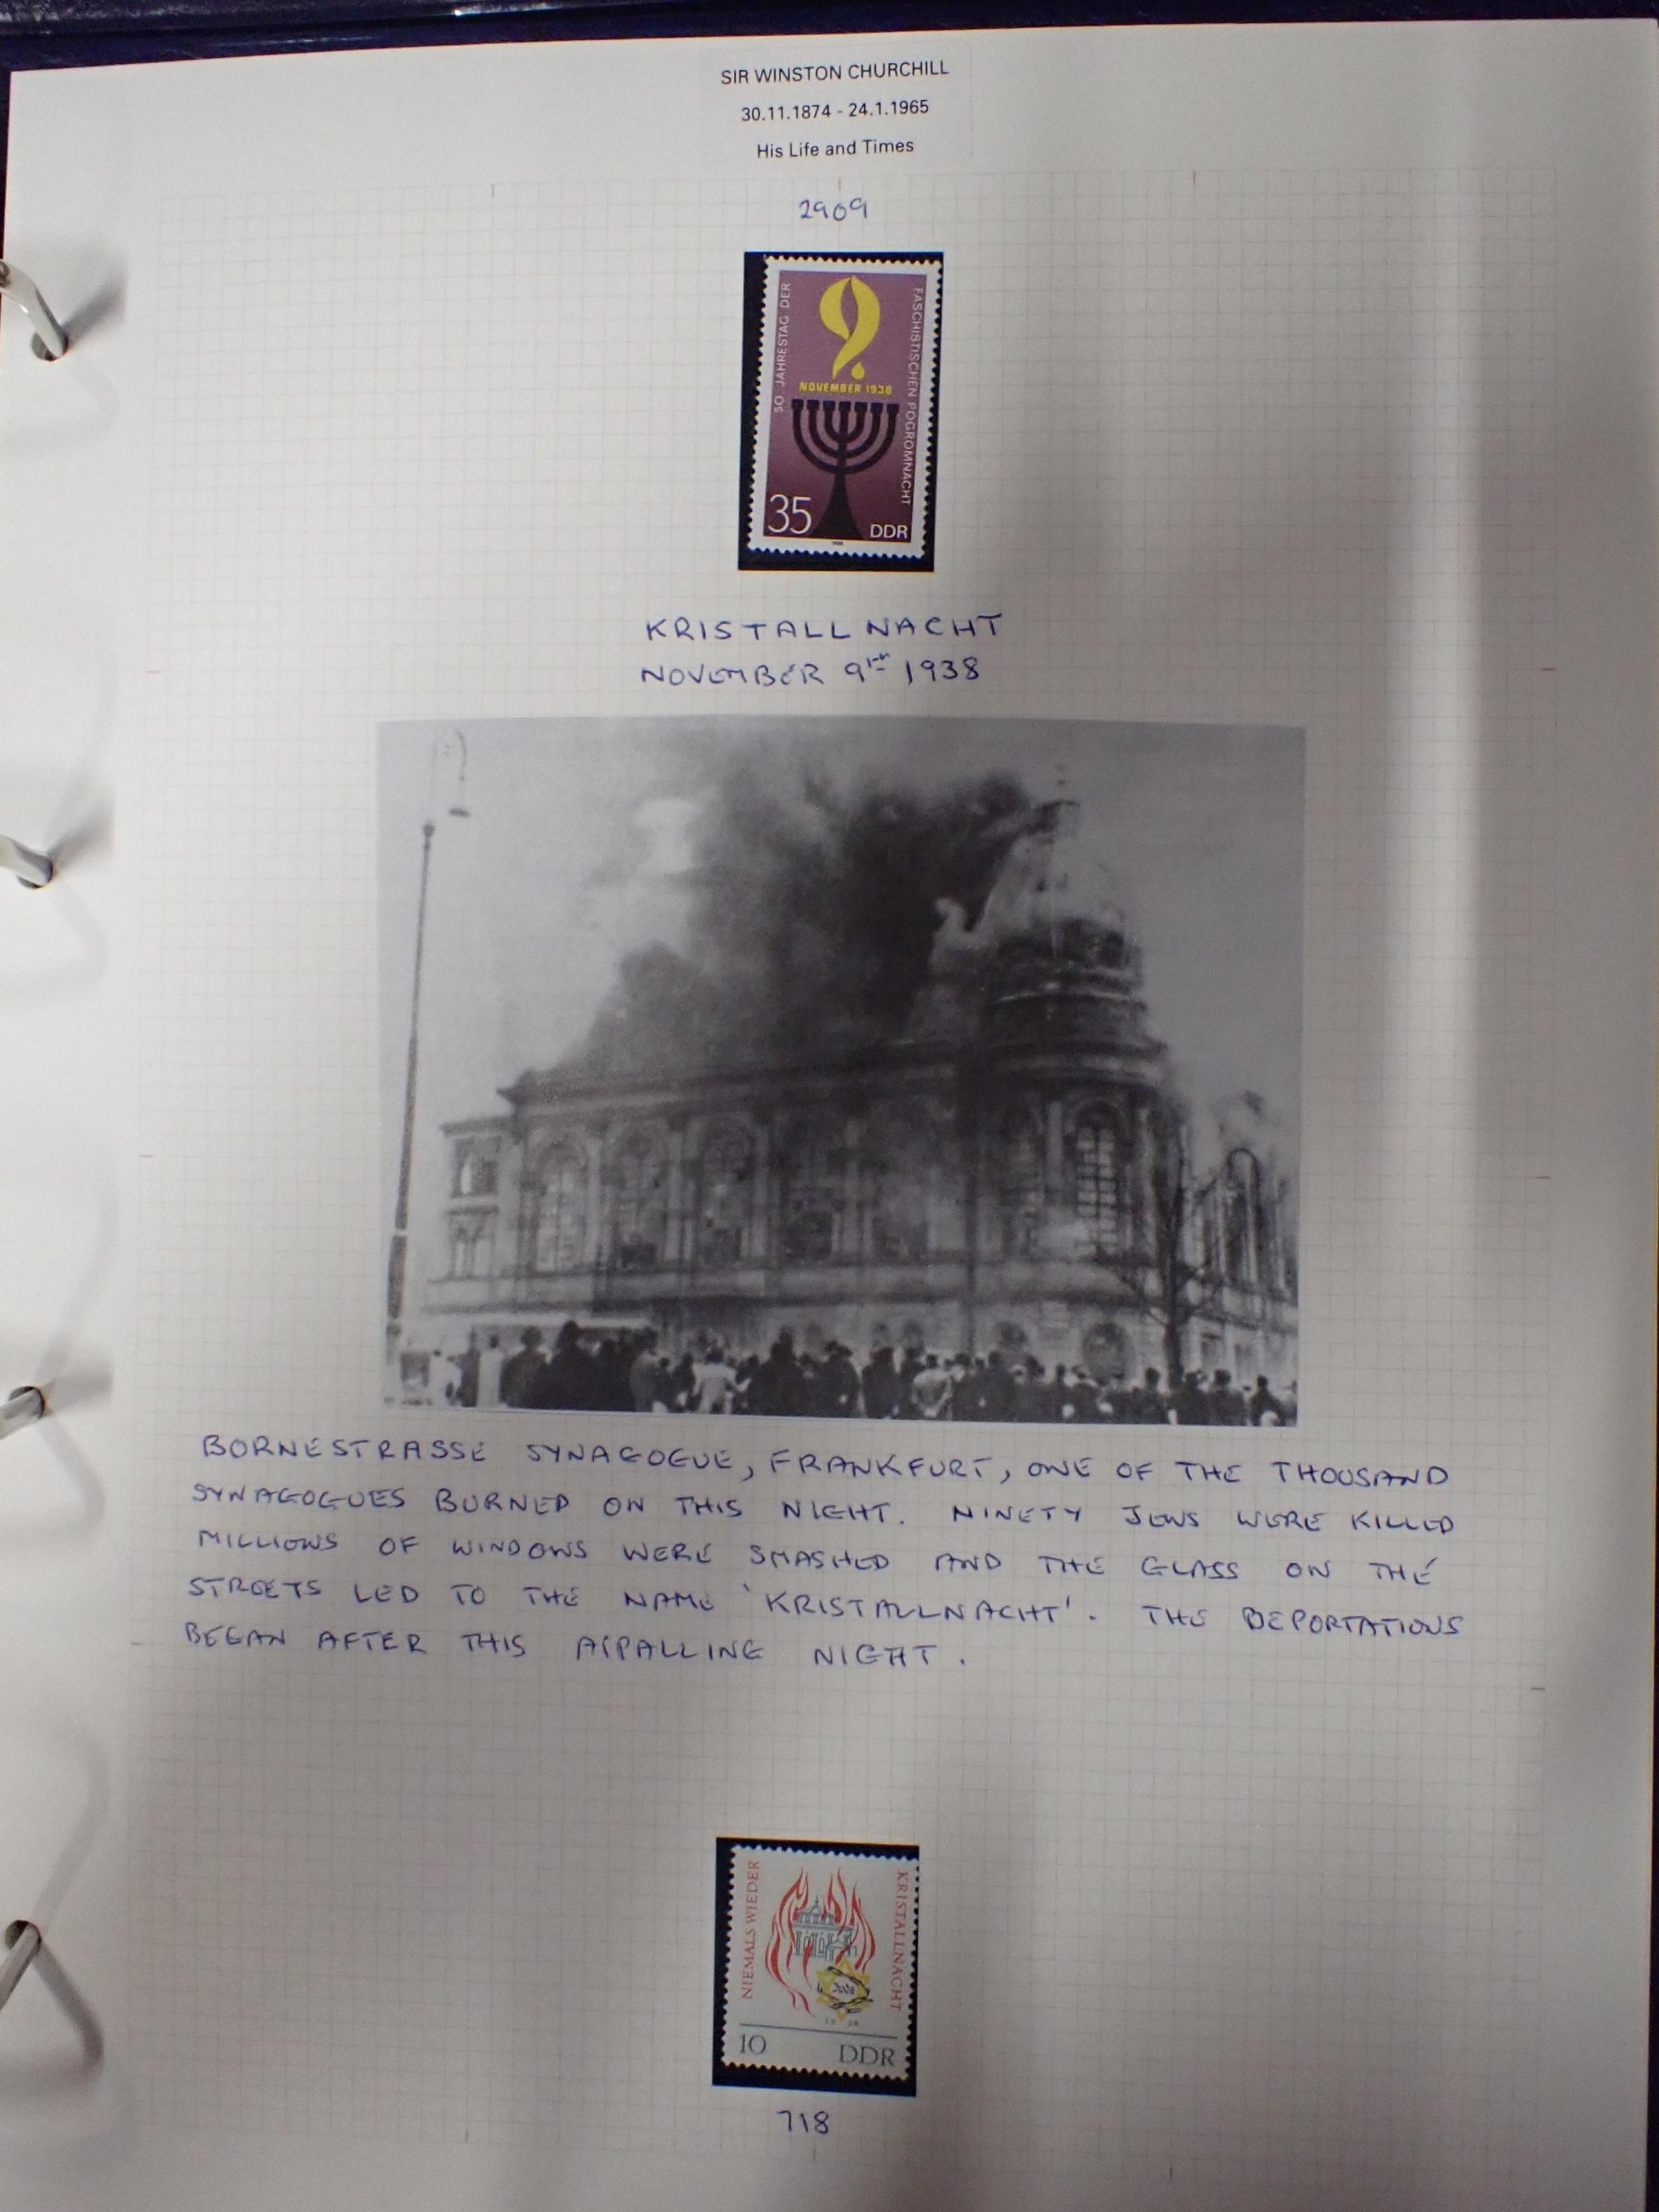 SIR WINSTON CHURCHILL
30.11.1874 - 24.1.1965
His Life and Times
2909
50. JAHRESTAG DER
FASCHISTISCHEN POGROMNACHT
9.
NOVEMBER 1938
35
DDR
KRISTALLNACHT
NOVEMBER 9TH 1938
BORNESTRASSE SYNAGOGUE, FRANKFURT, ONE OF THE THOUSAND
SYNAGOGUES BURNED ON THIS NIGHT. NINETY JEWS WERE KILLED
MILLIONS OF WINDOWS WERE SMASHED AND THE GLASS ON THE
STREETS LED TO THE NAME 'KRISTALLNACHT'. THE DEPORTATIONS
BEGAN AFTER THIS APPALLING NIGHT.
NIEMALS WIEDER
KRISTALLNACHT
Jude
1938
10
DDR
718